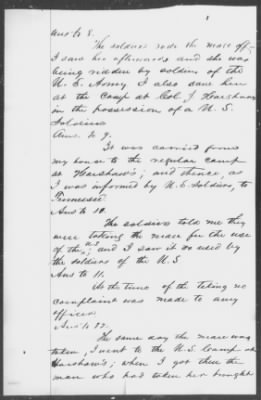 Ans to 8.
The soldier rode the mare off.
I saw her afterwards and she was
being ridden by soldiers of the
U. S. Army I also saw her
at the Camp at Col J Harshaw
in the possession of a U. S.
Soldier
Ans. to 9.
It was carried from
my house to the regular camp
at Harshaw's; and thence, as
I was informed by U. S. Soldiers, to
Tennessee.
Ans to 10.
The soldiers told me they
were taking the mare for the use
of the U.S.; and I saw it so used by
the soldiers of the U. S.
Ans to 11.
At the time of the taking no
complaint was made to any
officer
Ans to 12.
The same day the mare was
taken, I went to the U. S. Camp at
Harshaw's; when I got there the
man who had taken her brought